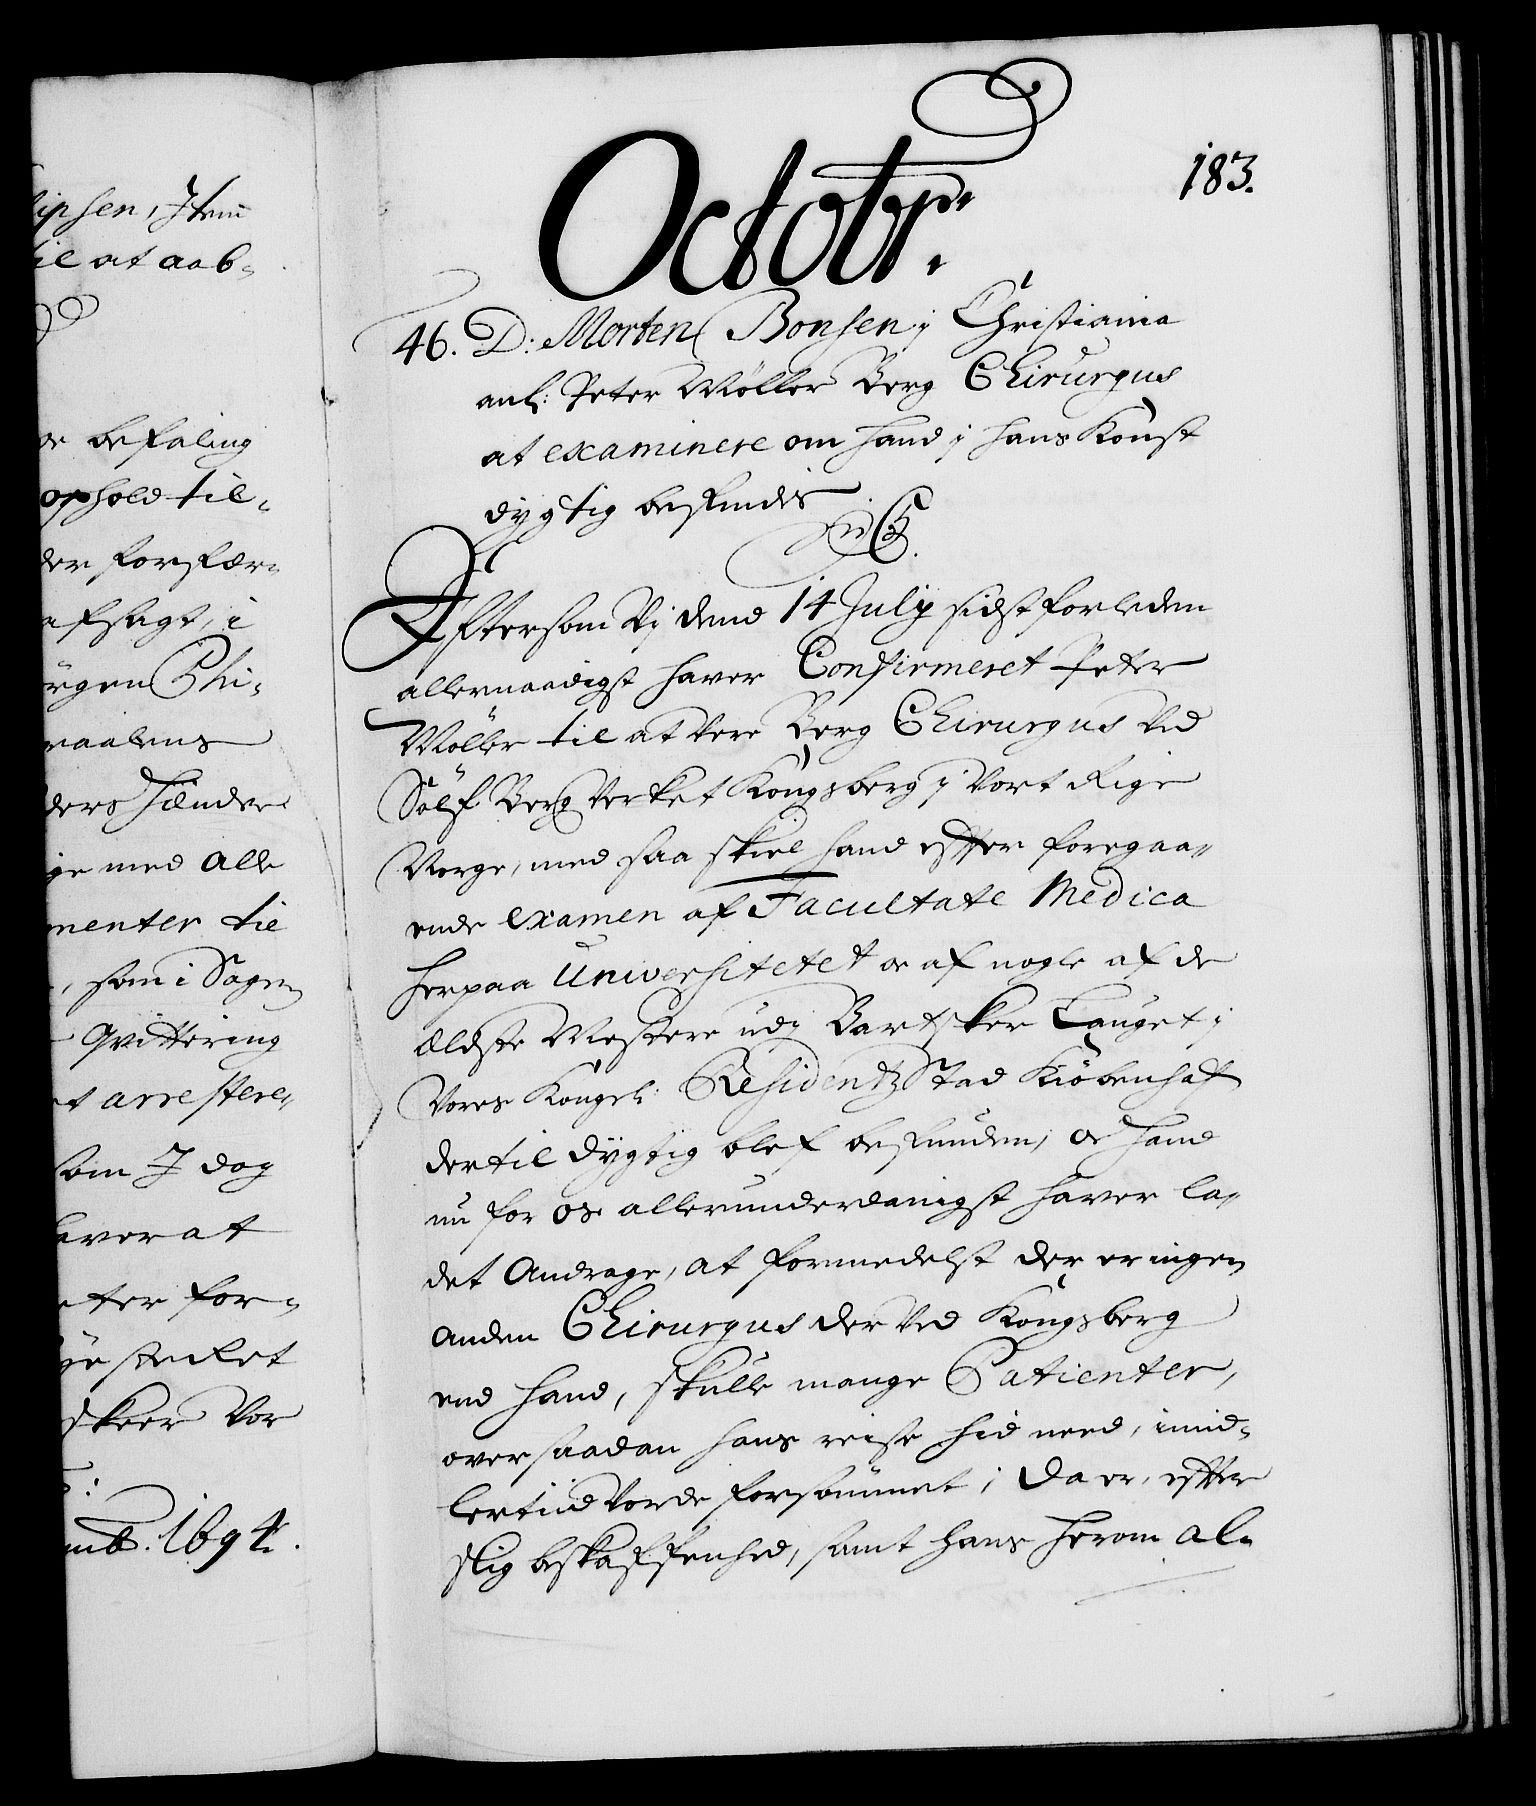 ipsen, Item
til at aab-
or befaling
ophold til-
der forfær-
afsagt, i
örgen Phi-
raalens
ders Hænder
ge med alle
menter til
, som i Sagen
Qvittering
et arrestere-
som I dag
haver at
etter for-
skeer Vor
mb. 1694.
183.
Octobr:
46. D: Morten Bonsen j Christiania
anl: Peter Møller Berg Chirurgus
at examinere om hand j hans Konst
dygtig befindis
C5.
Eftersom Vj dend 14 July sidst forleden
allernaadigst haver Confirmeret Peter
Møller til at være Berg Chirurgus ved
Sölf Bergverket Kongsberg j Vort Rige
Norge, med saa skiel hand effter foregaa-
ende examen af Facultate Medica
her paa Universitetet oc af nogle af de
ældste Mestere udj Bartsker Lauget j
Vores Kongel: Residentz Stad Kiöbenhafn
dertil dygtig blef befunden, oc hand
nu for os allerunderdanigst haver la-
det Andrage, at formedelst der er ingen
anden Chirurgus der ved Kongsberg
end hand, skulle mange Patienter,
over saadan hans reise hid need, imid-
lertiid vorde forsömmet; Da er, effter
slig beskaffenhed, samt hans herom al-